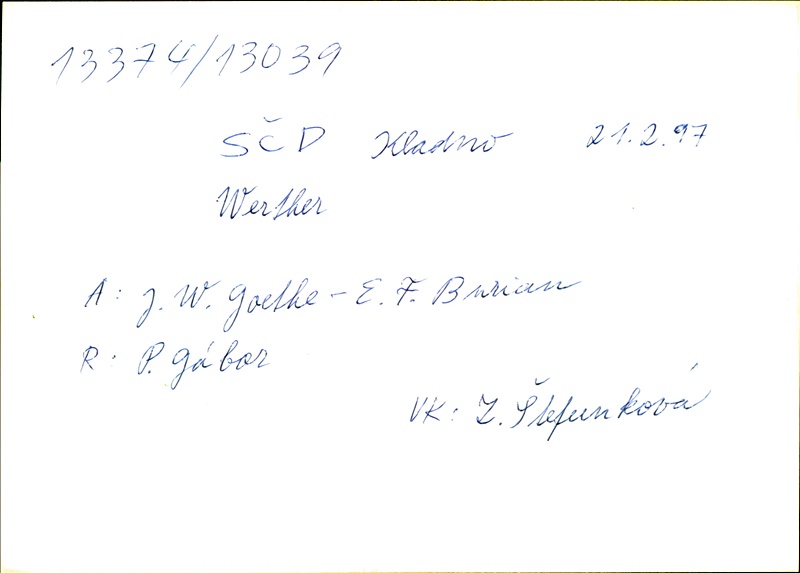 13374/13039
SČD Kladno 21.2.97
Werther
A: J. W. Goethe - E. F. Burian
R: P. Gábor
VK: Z. Štefunková